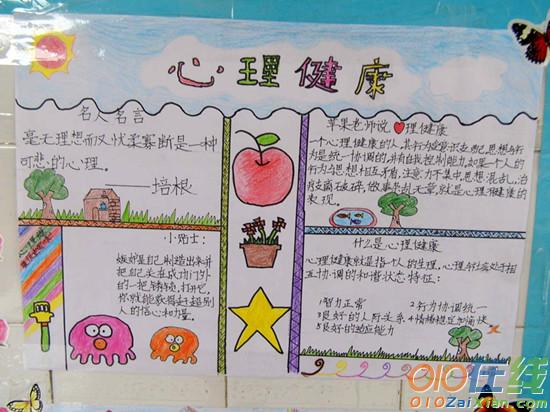 心理健康
名人名言
毫无理想而又忧柔寡断是一种
可悲的心理。
——培根
小贴士:
嫉妒是自己制造出来并
把自己关在成功门外
的一把锈锁,打开它,
你就能获得赶超别
人的信心和力量。
苹果老师说 理健康
一个心理健康的人,其行为受意识支配,思想与行
为是统一协调的,并有自我控制能力,如果一个人的
行为与思想相互矛盾,注意力不集中思想混乱,语
言支离破碎,做事杂乱无章,就是心理不健康的
表现。
什么是心理健康
心理健康就是指个人的生理,心理与社会处于相
互协调的和谐状态特征:
1智力正常 2行为协调统一
3良好的人际关系 4情绪稳定与愉快
5良好的适应能力
010在线
010ZaiXian.com